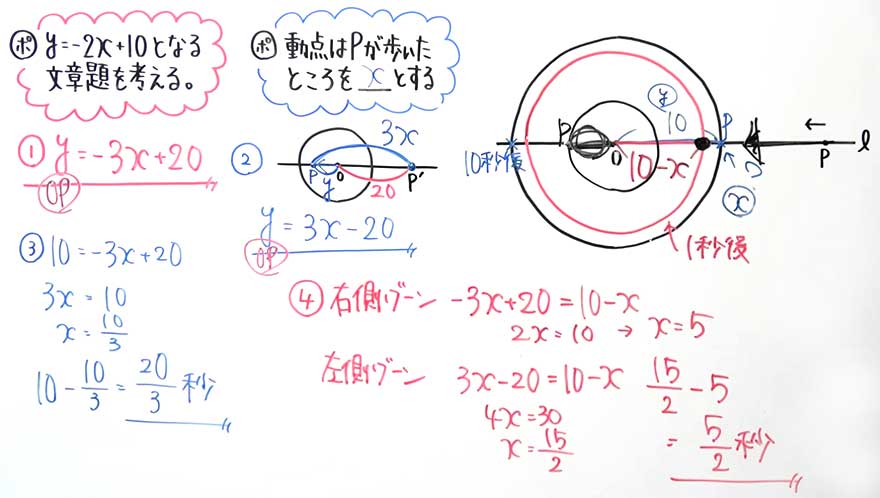 ポ y=-2x+10となる
文章題を考える。
① y=-3x+20
OP
ポ 動点はPが歩いた
ところを x とする
② 3x
P y O 20 P'
y=3x-20
OP
③ 10=-3x+20
3x=10
x=10/3
10-10/3=20/3秒
y
P 10 P ← l
O 10-x P
10秒後 x
1秒後
④ 右側ゾーン -3x+20=10-x
2x=10 → x=5
左側ゾーン 3x-20=10-x 15/2-5
4x=30
x=15/2 =5/2秒